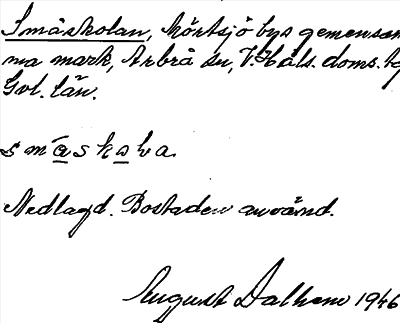 Småskolan, Mörtsjö bys gemensam
ma mark, Arbrå sn, V. Häls. doms.
Gvl. län.
småskola
Nedlagd. Bostaden använd.
August Dalhem 1946